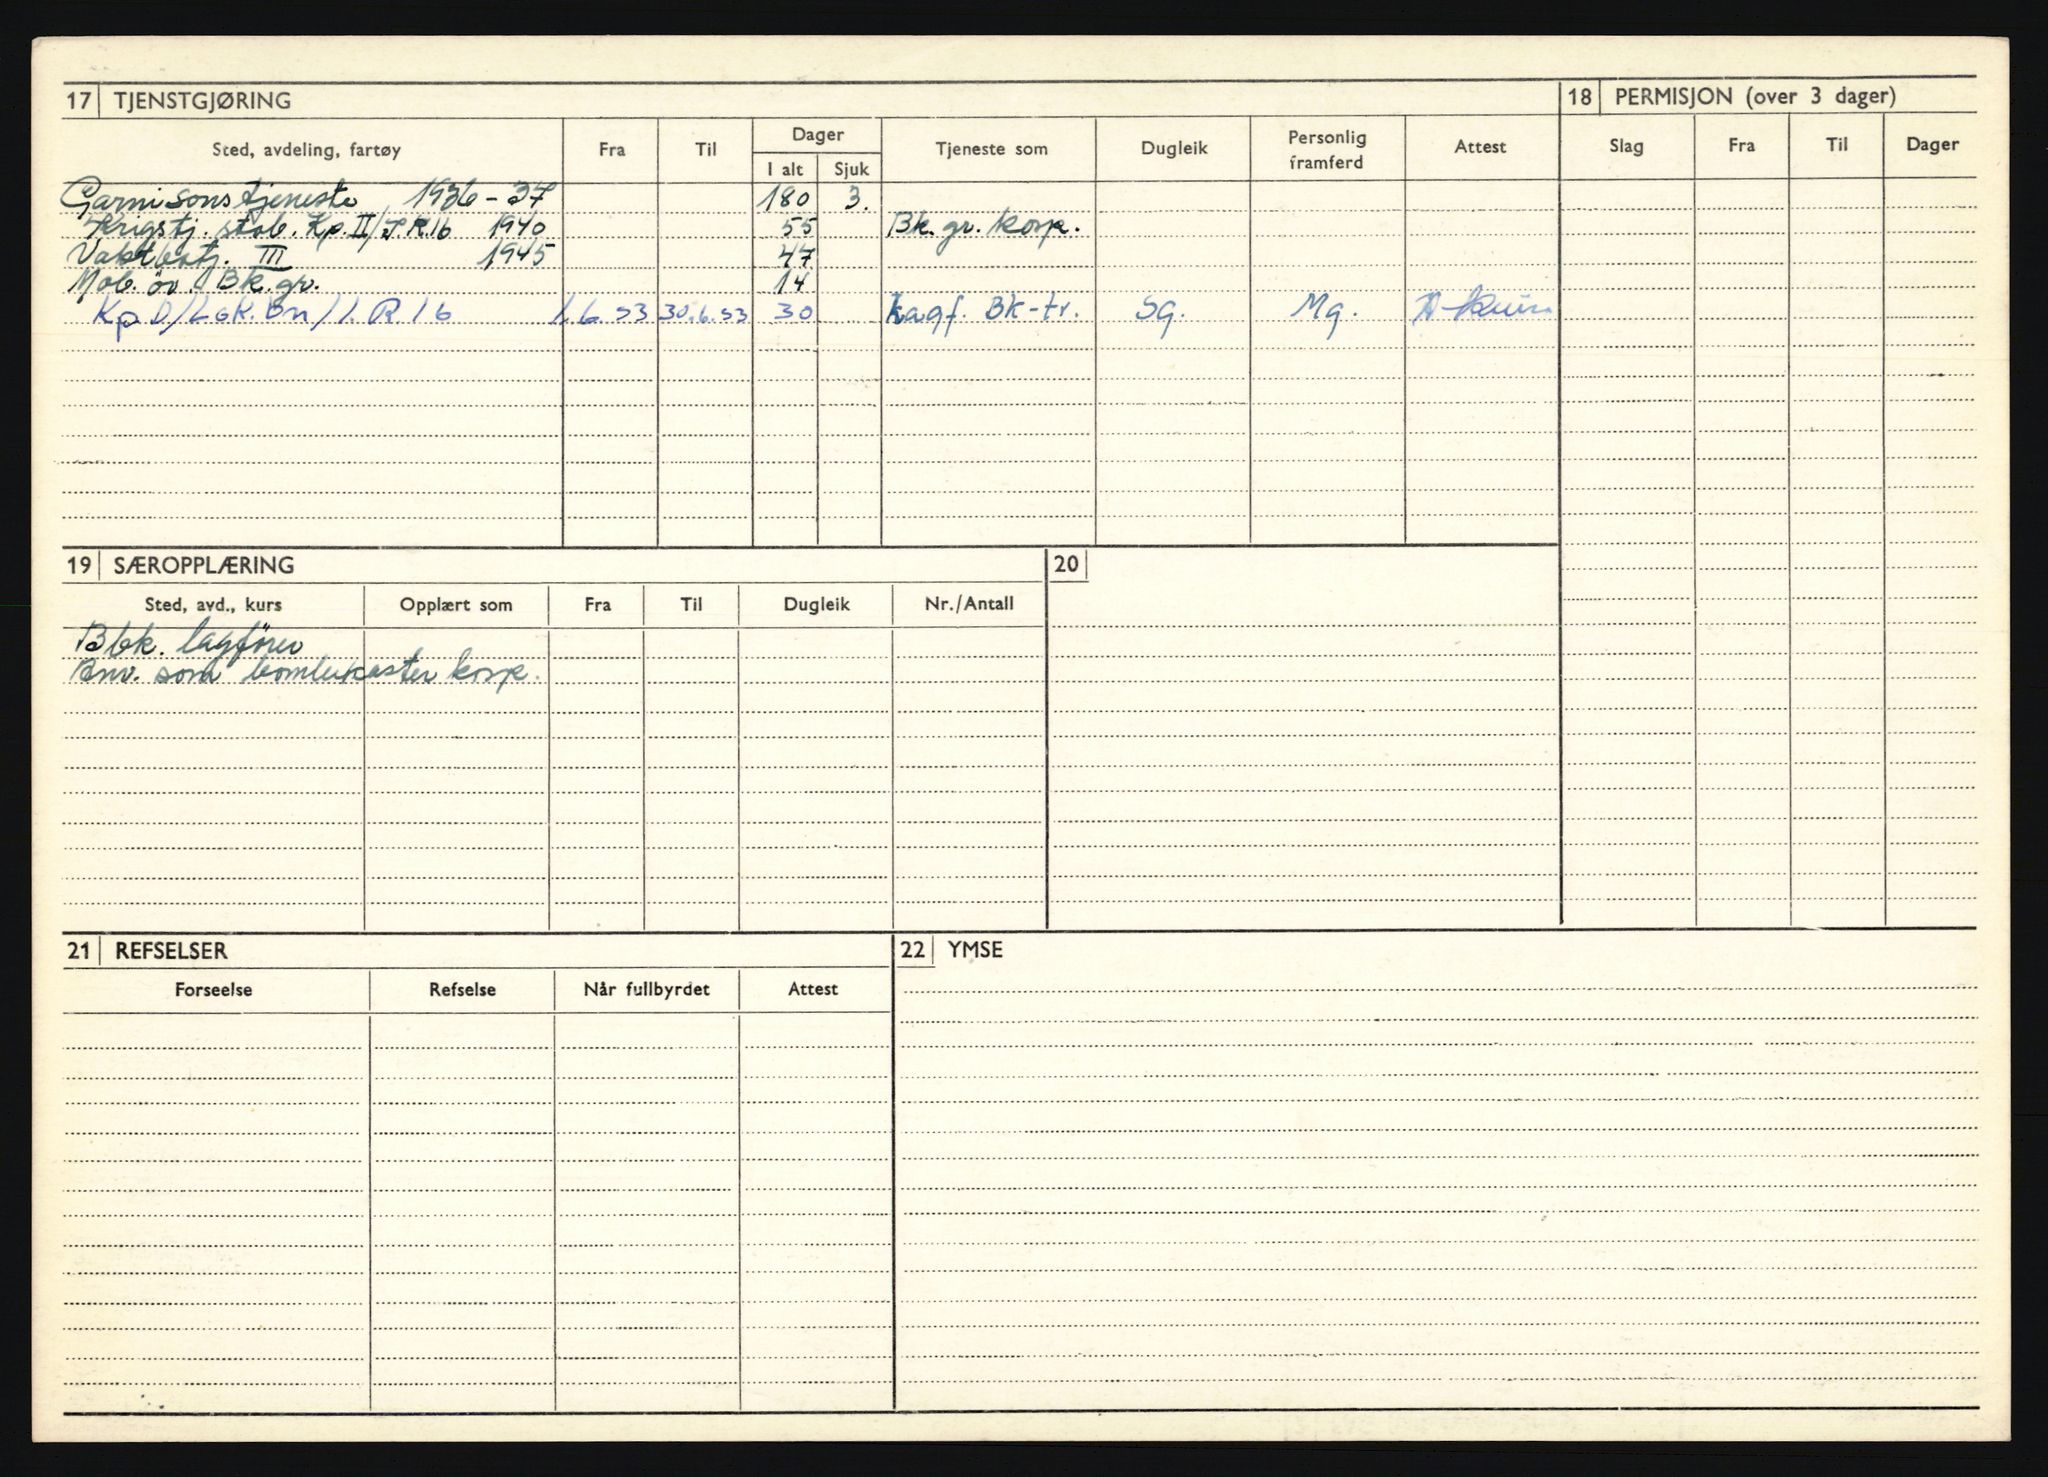 17 TJENSTGJØRING
18 PERMISJON (over 3 dager)
Sted, avdeling, fartøy Fra Til Dager I alt Sjuk Tjeneste som Dugleik Personlig framferd Attest Slag Fra Til Dager
Garnisonstjeneste 1936-37 180 3.
Krigstj. stab. Kp. II/J.R.16 1940 55 Bk. gr. korp.
Vaktbatj. III 1945 47
Mob. öv. Bk. gr. 14
Kp D/Lgk.Bn/I.R.16 1.6.53 30.6.53 30 Lagf. Bk-tr. Sg. Mg.
19 SÆROPPLÆRING
20
Sted, avd., kurs Opplært som Fra Til Dugleik Nr./Antall
Bbk. lagförer
Anv. som bombekaster korp.
21 REFSELSER
22 YMSE
Forseelse Refselse Når fullbyrdet Attest